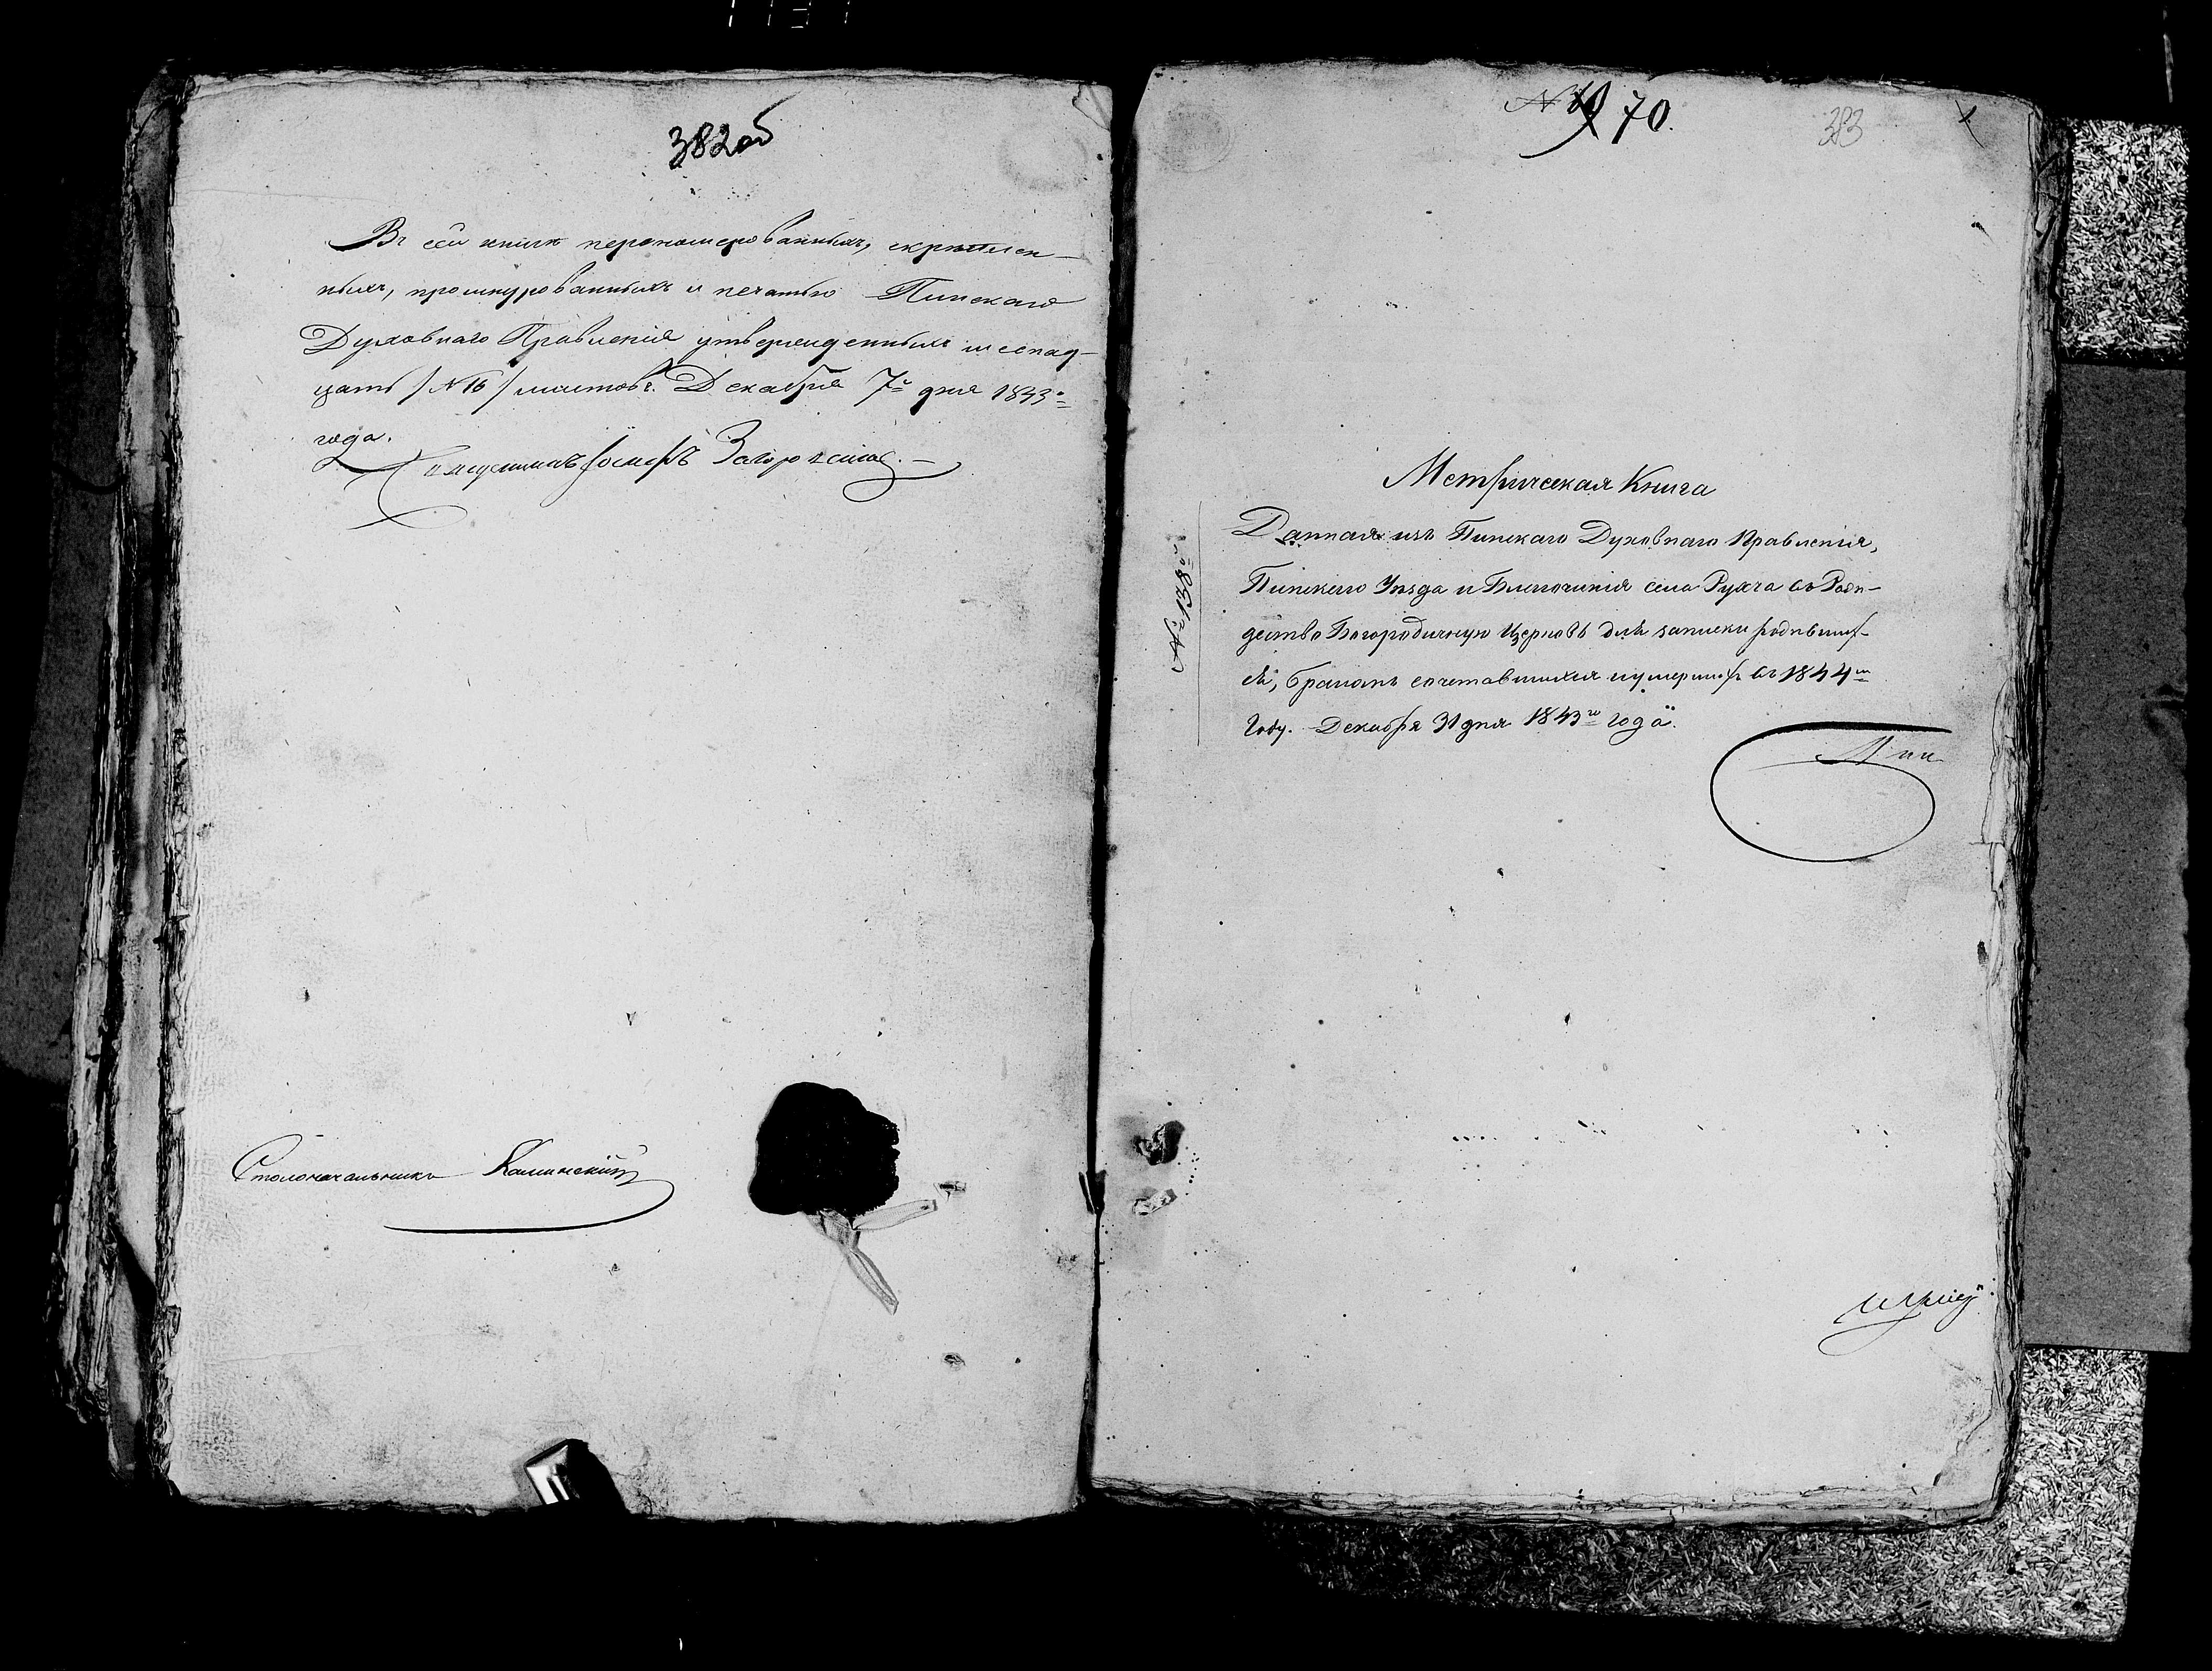 382об
Въ сей книгѣ перономерованныхъ, скрѣплен-
ныхъ, прошнурованныхъ и печатью Пинскаго
Духовнаго Правленія утвержденныхъ шеснад-
цать /№ 16/ листовъ. Декабря 7го дня 1843го
года.
Іосифъ
Столоначальникъ Калинскій
№ 70.
383
Метрическая Книга
Данная изъ Пинскаго Духовнаго Правленія,
Пинскаго Уѣзда и Благочинія села Рухча въ Рож-
дество Богородичную Церковь для записки родивших-
ся, бракомъ сочетавшихся и умерших въ 1844м
Году. Декабря 31 дня 1843го года.
№ 138й